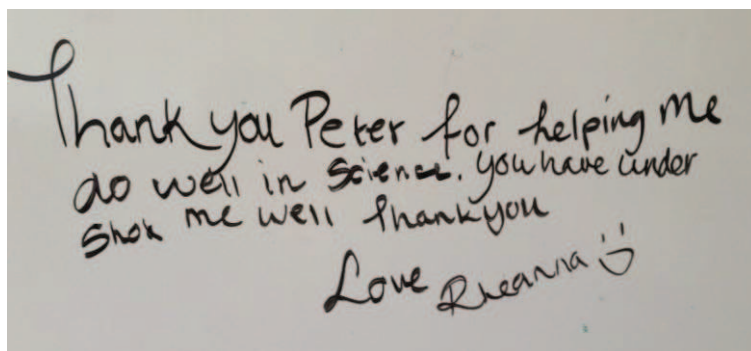 Thank you Peter for helping me
do well in Science. You have under
shok me well thankyou
Love Rheanna